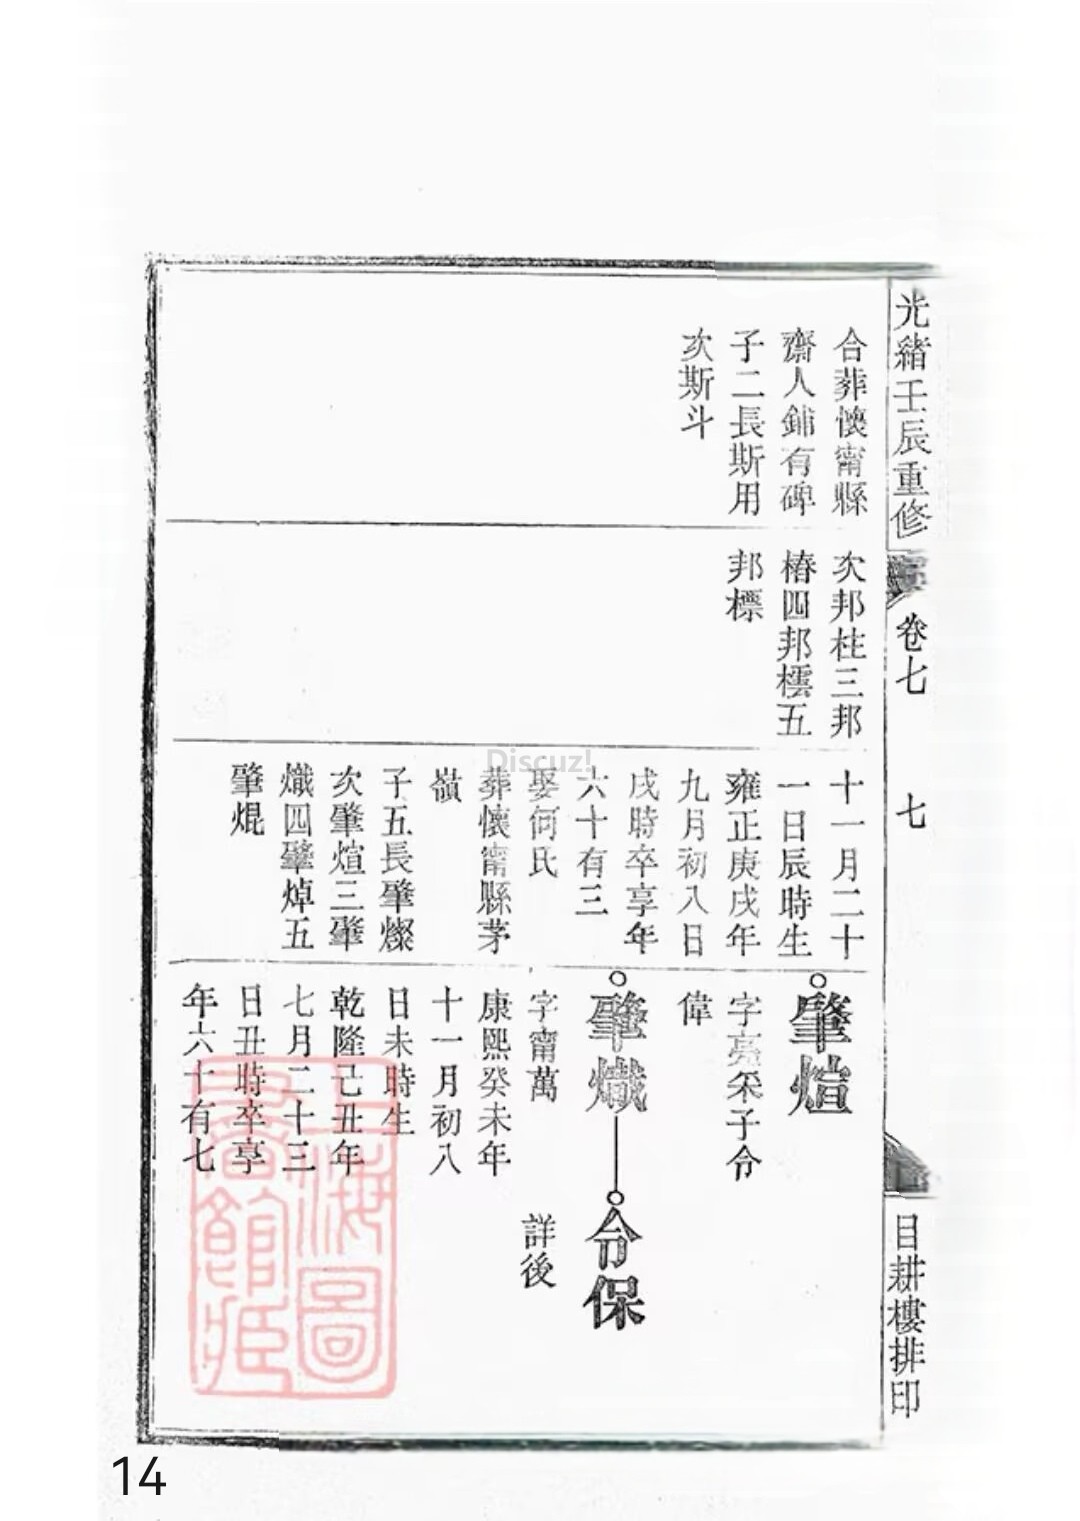 光緒壬辰重修
卷七
七
目耕樓排印
合葬懷甯縣
齋人鋪有碑
子二長斯用
次斯斗
次邦柱三邦
椿四邦橒五
邦標
十一月二十
一日辰時生
雍正庚戌年
九月初八日
戌時卒享年
六十有三
娶何氏
葬懷甯縣茅
嶺
子五長肇燦
次肇煊三肇
熾四肇焯五
肇焜
肇煊
字亮采子令
偉
肇熾
令保
詳後
字甯萬
康熙癸未年
十一月初八
日未時生
乾隆己丑年
七月二十三
日丑時卒享
年六十有七
上海圖
書館藏
Discuz!
14